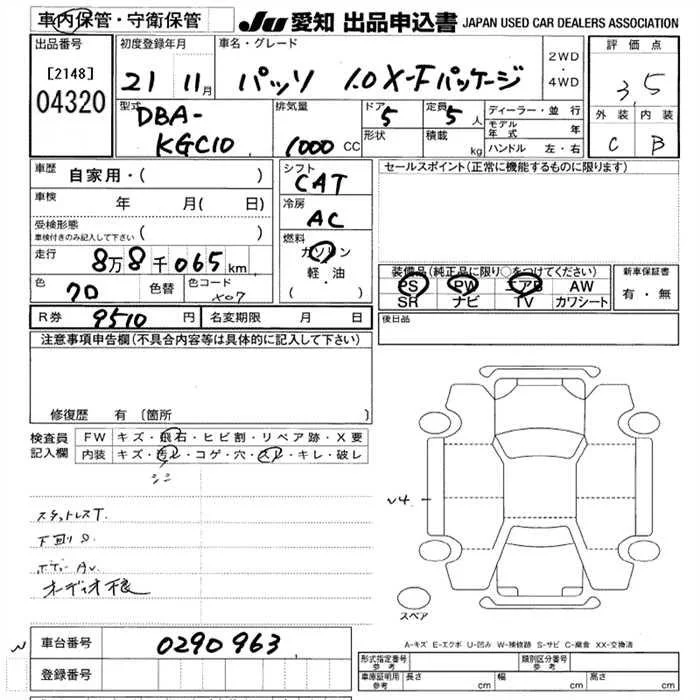 車内保管・守衛保管
JU 愛知 出品申込書 JAPAN USED CAR DEALERS ASSOCIATION
出品番号
[2148]
04320
初度登録年月
21 11月
車名・グレード
パッソ 1.0 X-Fパッケージ
2WD
・
4WD
評価点
3.5
外装 内装
C B
型式
DBA-
KGC10
排気量
1000 CC
ドア
5
形状
定員
5人
積載
kg
ディーラー・並行
モデル年式 年
ハンドル 左・右
車歴
自家用・( )
車検 年 月( 日)
受検形態
車検付きのみ記入して下さい ( )
走行
8万8千065km
色
色替
色コード
X07
シフト
CAT
冷房
AC
燃料
ガソリン
軽・油
・( )
セールスポイント(正常に機能するものに限ります)
装備品(純正品に限り○をつけてください)
PS PW エアB AW
SR ナビ TV カワシート
新車保証書
有・無
R券 9510円 名変期限 月 日
後日品
注意事項申告欄(不具合内容等は具体的に記入して下さい)
修復歴 有(箇所
検査員記入欄
FW キズ・飛石・ヒビ割・リペア跡・X要
内装 キズ・汚レ・コゲ・穴・スレ・キレ・破レ
シミ
スタットレスT.
下回りS
ボデーAU
オーディオ様
U4
スペア
A-キズ E-エクボ U-凹み W-補修跡 S-サビ C-腐食 XX-交換済
車台番号 0290963
登録番号
形式指定番号
参考
類別区分番号
参考
車庫証明用
参考
長さ cm 幅 cm 高さ cm